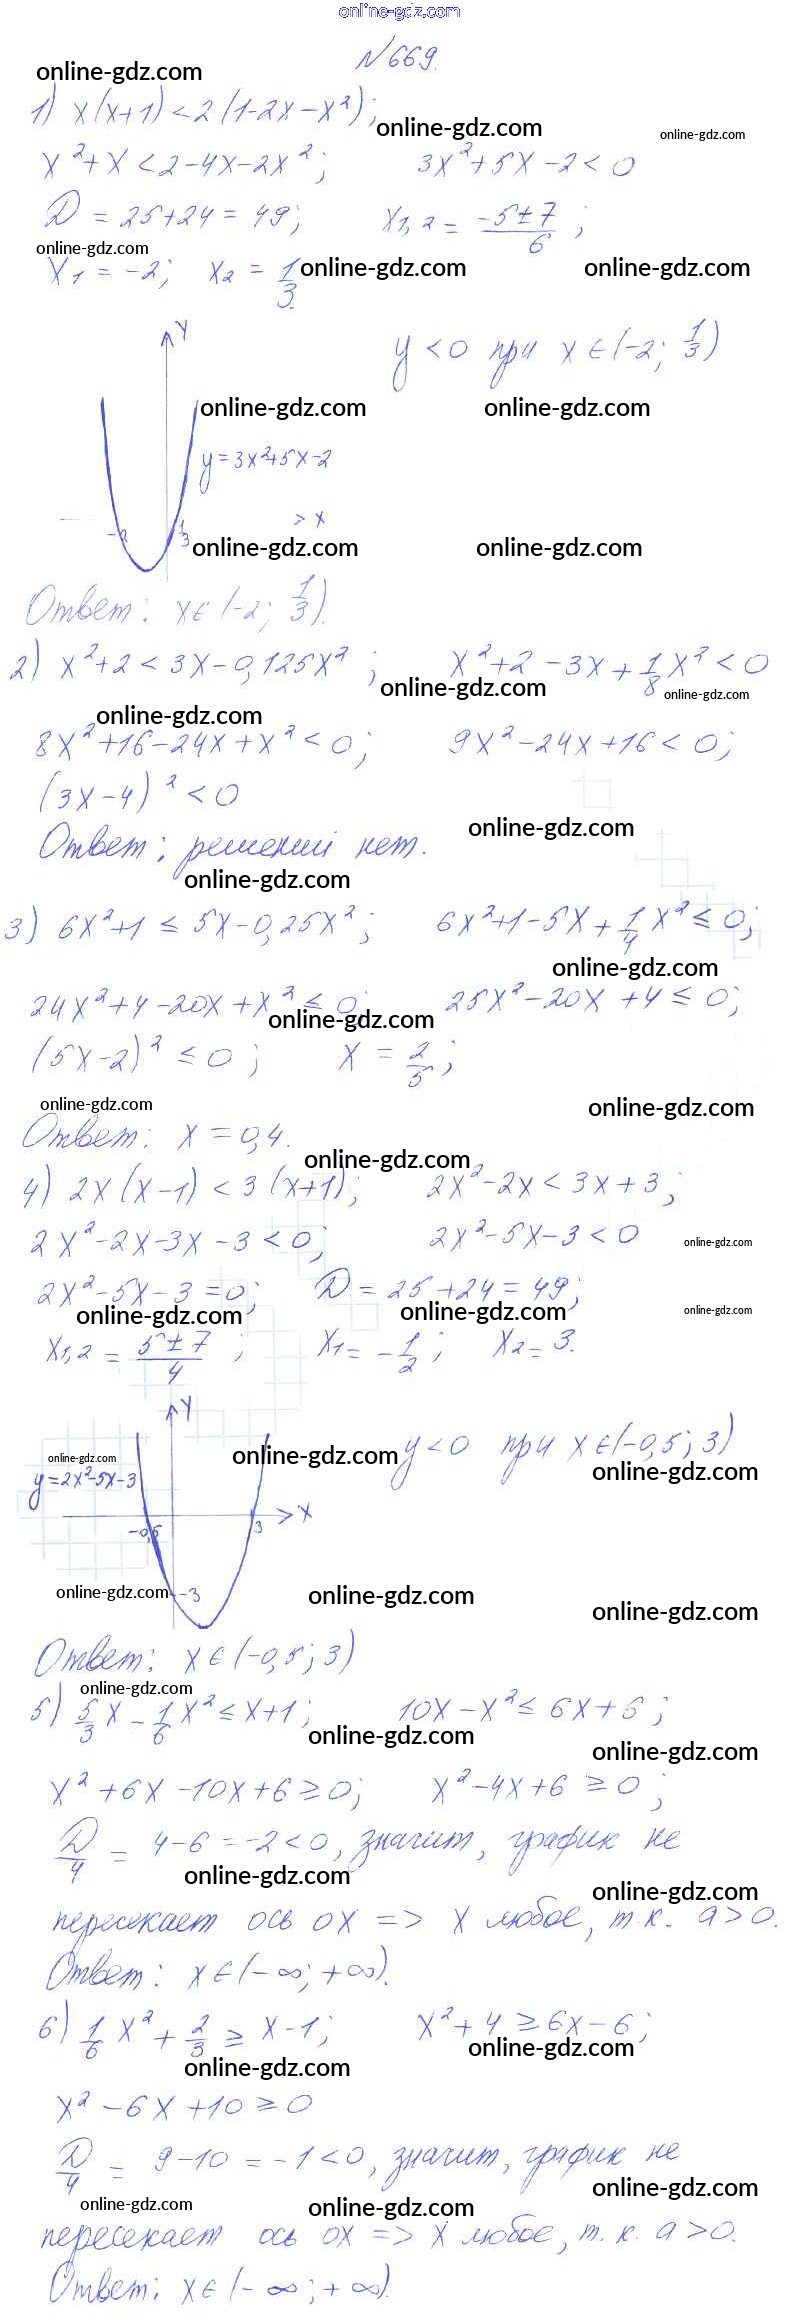 online-gdz.com
N 669.
online-gdz.com
1) x(x+1) < 2(1-2x-x²);
online-gdz.com online-gdz.com
x²+x < 2-4x-2x²; 3x²+5x-2 < 0
D = 25+24 = 49; x1,2 = (-5±7)/6;
online-gdz.com
x1 = -2; x2 = 1/3. online-gdz.com online-gdz.com
y
y < 0 при x ∈ (-2; 1/3)
online-gdz.com online-gdz.com
y = 3x²+5x-2
-2 1/3 x
online-gdz.com online-gdz.com
Ответ: x ∈ (-2; 1/3).
2) x²+2 < 3x-0,125x²; x²+2-3x+1/8x² < 0
online-gdz.com online-gdz.com
online-gdz.com
8x²+16-24x+x² < 0; 9x²-24x+16 < 0;
(3x-4)² < 0
online-gdz.com
Ответ: решений нет.
online-gdz.com
3) 6x²+1 ≤ 5x-0,25x²; 6x²+1-5x+1/4x² ≤ 0;
online-gdz.com
24x²+4-20x+x² ≤ 0; 25x²-20x+4 ≤ 0;
online-gdz.com
(5x-2)² ≤ 0; x = 2/5;
online-gdz.com online-gdz.com
Ответ: x = 0,4.
online-gdz.com
4) 2x(x-1) < 3(x+1); 2x²-2x < 3x+3;
2x²-2x-3x-3 < 0; 2x²-5x-3 < 0
online-gdz.com
2x²-5x-3 = 0; D = 25+24 = 49;
online-gdz.com online-gdz.com online-gdz.com
x1,2 = (5±7)/4; x1 = -1/2; x2 = 3.
y
y < 0 при x ∈ (-0,5; 3)
online-gdz.com online-gdz.com online-gdz.com
y = 2x²-5x-3
-0,5 3 x
-3
online-gdz.com online-gdz.com online-gdz.com
Ответ: x ∈ (-0,5; 3)
online-gdz.com
5) 5/3x - 1/6x² ≤ x+1; 10x-x² ≤ 6x+6;
online-gdz.com online-gdz.com
x²+6x-10x+6 ≥ 0; x²-4x+6 ≥ 0;
D/4 = 4-6 = -2 < 0, значит, график не
online-gdz.com online-gdz.com
пересекает ось ох => x любое, т.к. a > 0.
Ответ: x ∈ (-∞; +∞).
6) 1/6x² + 2/3 ≥ x-1; x²+4 ≥ 6x-6;
online-gdz.com online-gdz.com
x²-6x+10 ≥ 0
D/4 = 9-10 = -1 < 0, значит, график не
online-gdz.com online-gdz.com online-gdz.com
пересекает ось ох => x любое, т.к. a > 0.
Ответ: x ∈ (-∞; +∞).